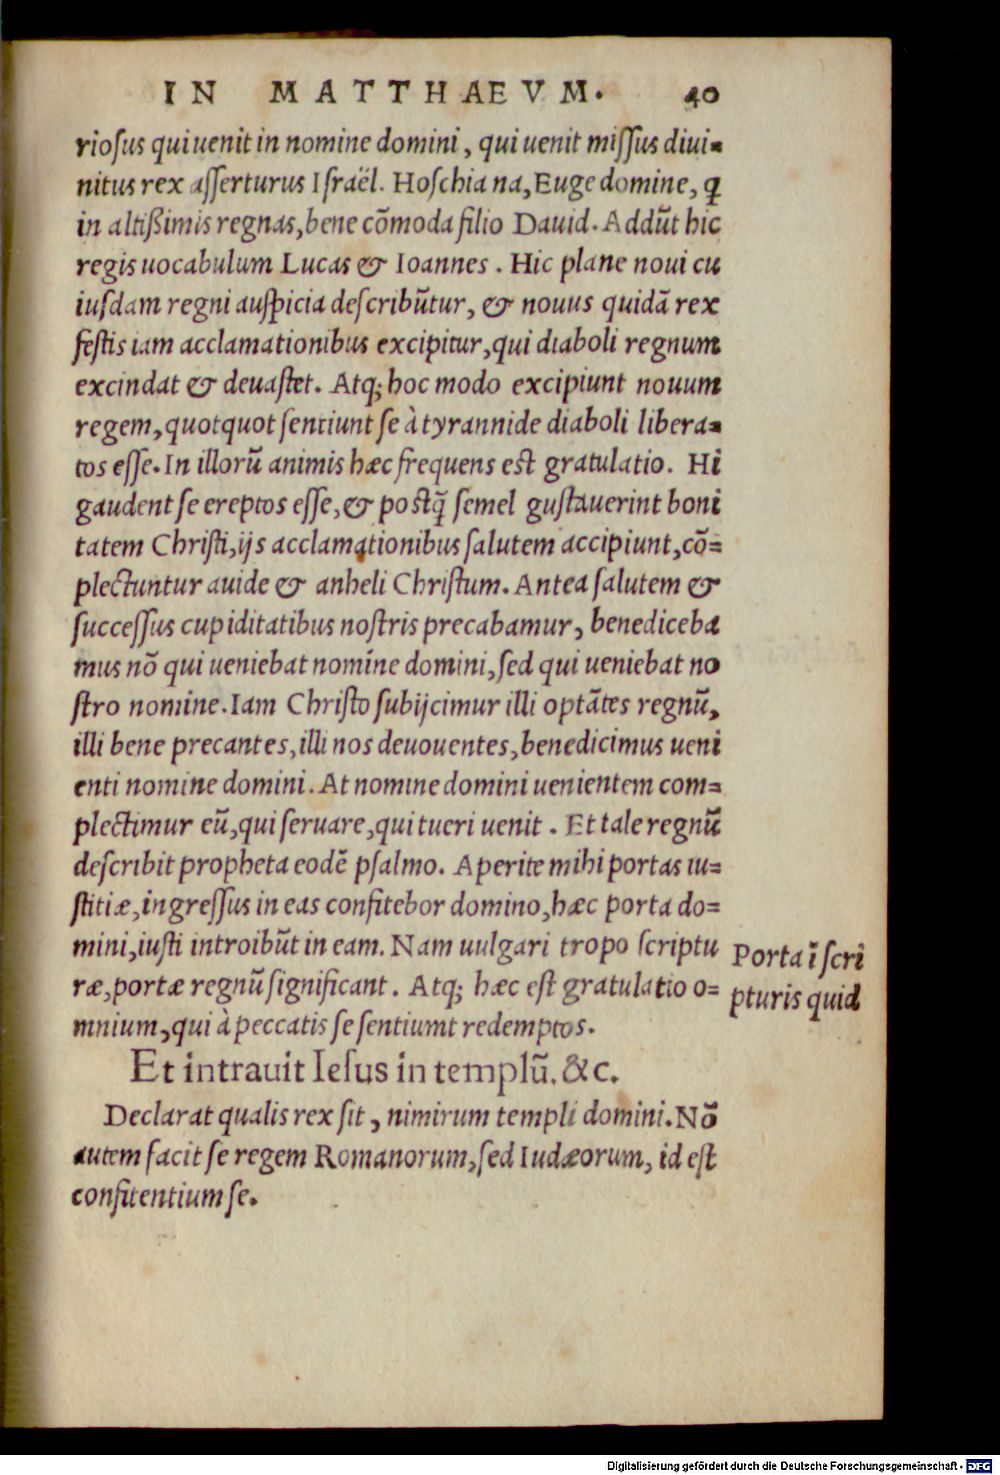 IN MATTHAEVM. 40
rioſus qui uenit in nomine domini, qui uenit miſſus diui-
nitus rex aſſerturus Iſraël. Hoſchia na, Euge domine, ꝙ
in altißimis regnas, bene cōmoda filio Dauid. Addūt hic
regis uocabulum Lucas & Ioannes. Hic plane noui cu
iuſdam regni auſpicia deſcribūtur, & nouus quidā rex
feſtis iam acclamationibus excipitur, qui diaboli regnum
excindat & deuaſtet. Atq; hoc modo excipiunt nouum
regem, quotquot ſentiunt ſe à tyrannide diaboli libera-
tos eſſe. In illorū animis hæc frequens eſt gratulatio. Hi
gaudent ſe ereptos eſſe, & poſtq̃ ſemel guſtauerint boni
tatem Chriſti, ijs acclamationibus ſalutem accipiunt, cō=
plectuntur auide & anheli Chriſtum. Antea ſalutem &
ſucceſſus cupiditatibus noſtris precabamur, benediceba
mus nō qui ueniebat nomine domini, ſed qui ueniebat no
ſtro nomine. Iam Chriſto ſubijcimur illi optātes regnū,
illi bene precantes, illi nos deuouentes, benedicimus ueni
enti nomine domini. At nomine domini uenientem com=
plectimur eū, qui ſeruare, qui tueri uenit. Et tale regnū
deſcribit propheta eodē pſalmo. Aperite mihi portas iu=
ſtitiæ, ingreſſus in eas confitebor domino, hæc porta do=
mini, iuſti introibūt in eam. Nam uulgari tropo ſcriptu
ræ, portæ regnū ſignificant. Atq; hæc eſt gratulatio o=
mnium, qui à peccatis ſe ſentiumt redemptos.
Porta ī ſcri
pturis quid
Et intrauit Ieſus in templū. &c.
Declarat qualis rex ſit, nimirum templi domini. Nō
autem facit ſe regem Romanorum, ſed Iudæorum, id eſt
confitentium ſe.
Digitalisierung gefördert durch die Deutsche Forschungsgemeinschaft - DFG